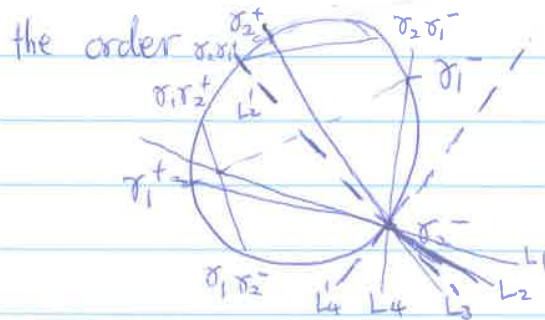 the order
γ₂⁺
γ₂γ₁⁻
γ₂γ₁
γ₁⁻
γ₁γ₂⁺
L₂'
γ₁⁺
γ₂⁻
γ₁γ₂⁻
L₁
L₂
L₃'
L₄
L₄'